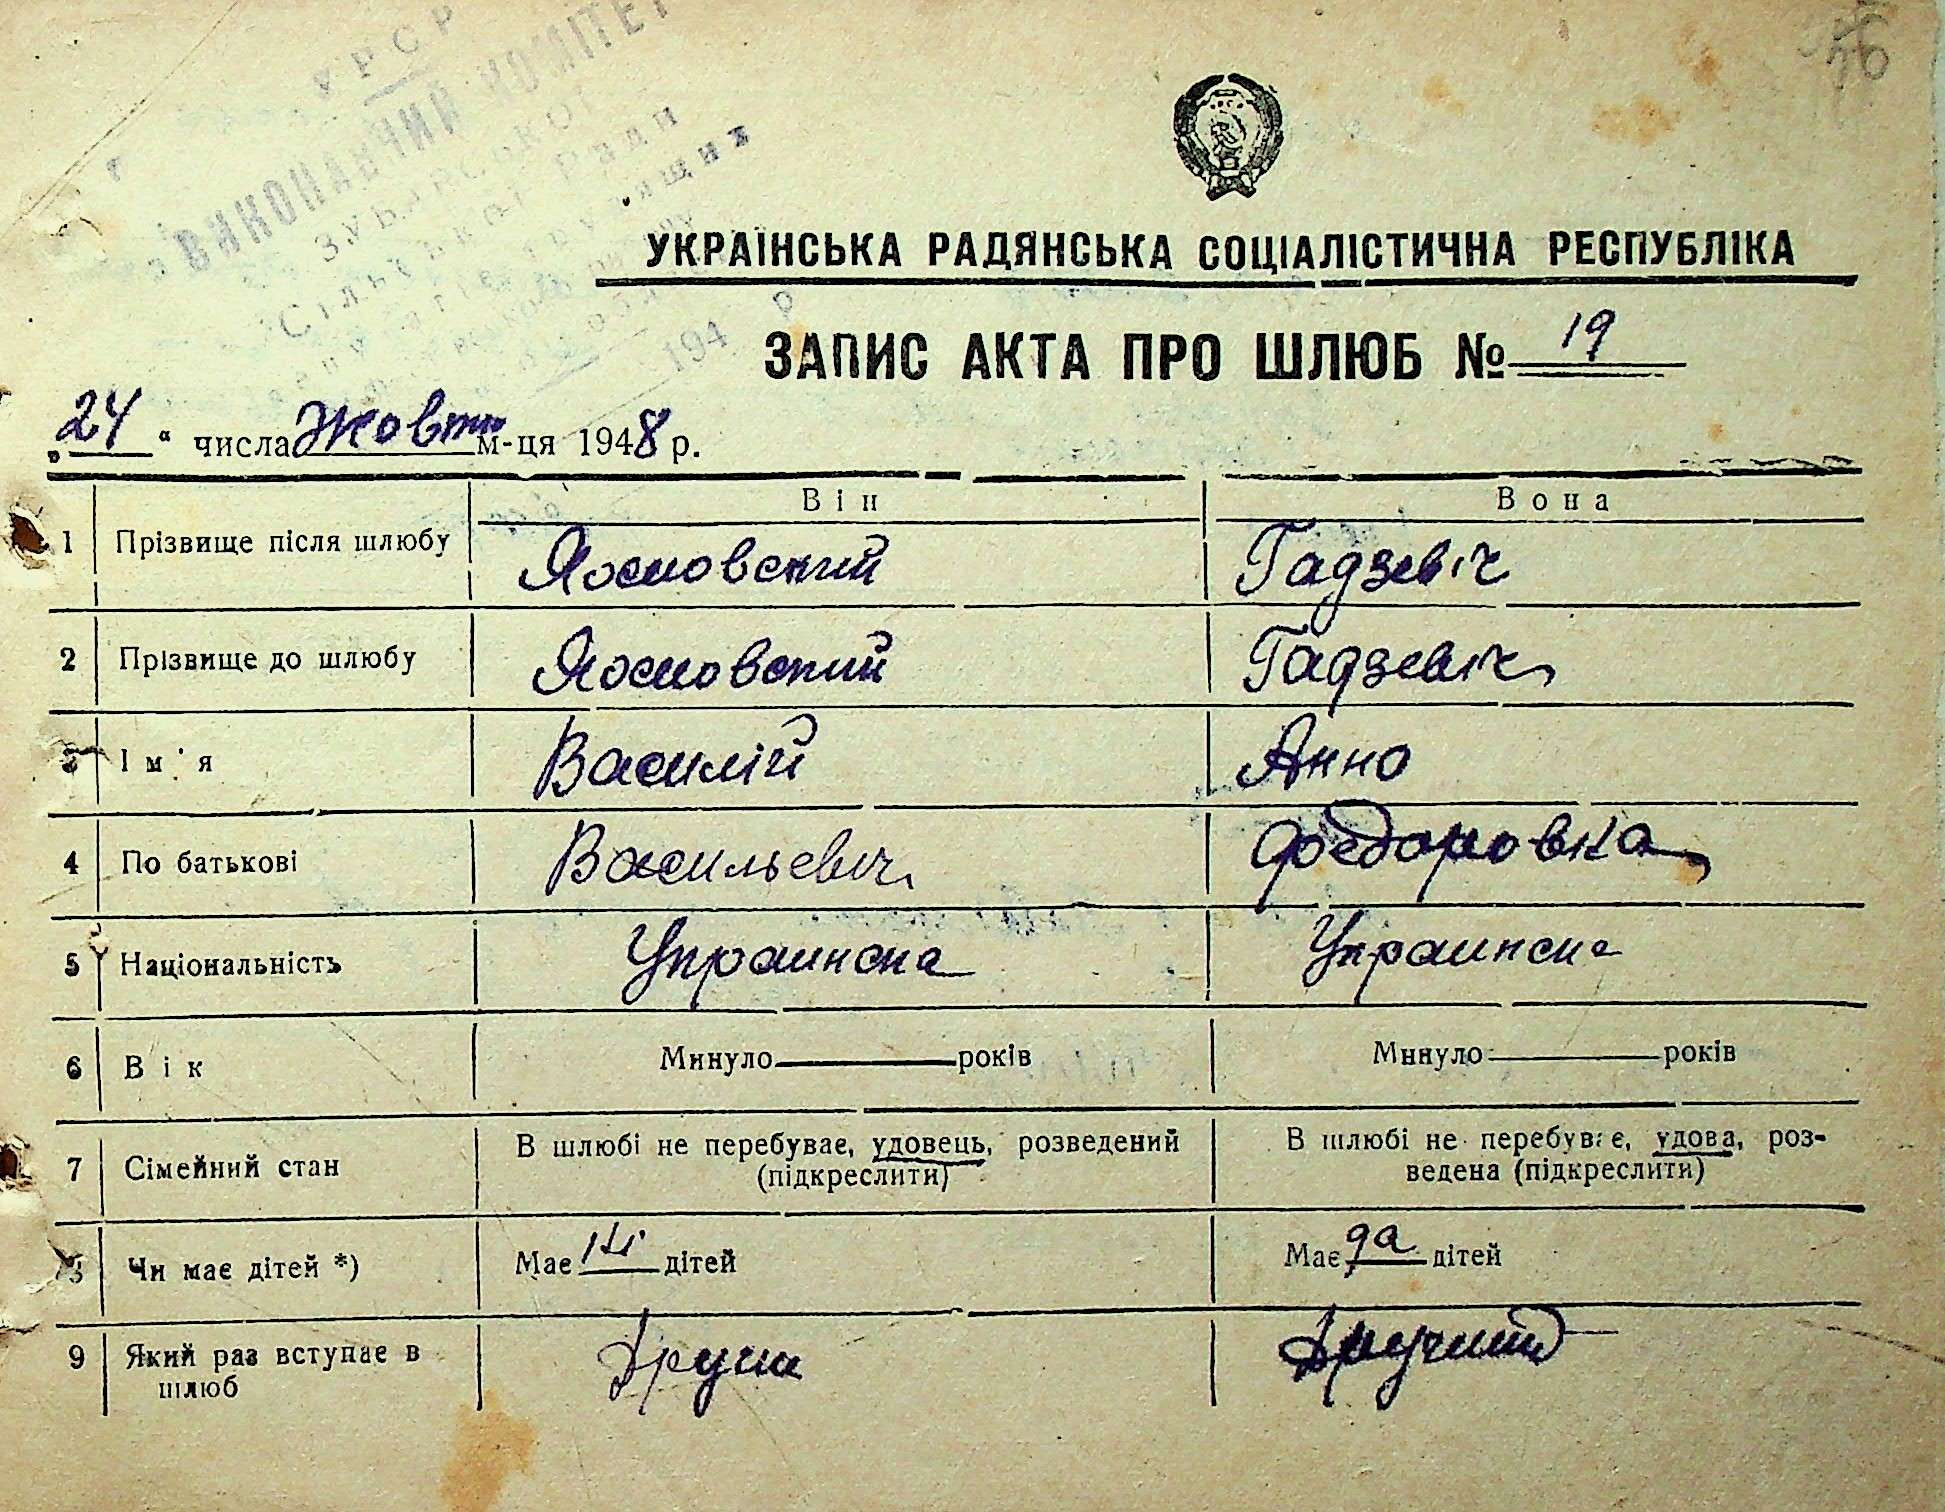 56
УРСР
ВИКОНАВЧИЙ КОМІТЕТ
Сільської Ради
194 р
УКРАЇНСЬКА РАДЯНСЬКА СОЦІАЛІСТИЧНА РЕСПУБЛІКА
ЗАПИС АКТА ПРО ШЛЮБ № 19
„24“ числа Жовтн м-ця 1948 р.
Він Вона
1 Прізвище після шлюбу Ясновский Гадзевіч
2 Прізвище до шлюбу Ясновский Гадзевіч
3 Ім'я Василій Анна
4 По батькові Васильевич Фоедоровка
5 Національність Украинска Украинска
6 Вік Минуло років Минуло років
7 Сімейний стан В шлюбі не перебуває, удовець, розведений (підкреслити) В шлюбі не перебуває, удова, роз-
ведена (підкреслити)
8 Чи має дітей *) Має дітей Має да дітей
9 Який раз вступає в
шлюб